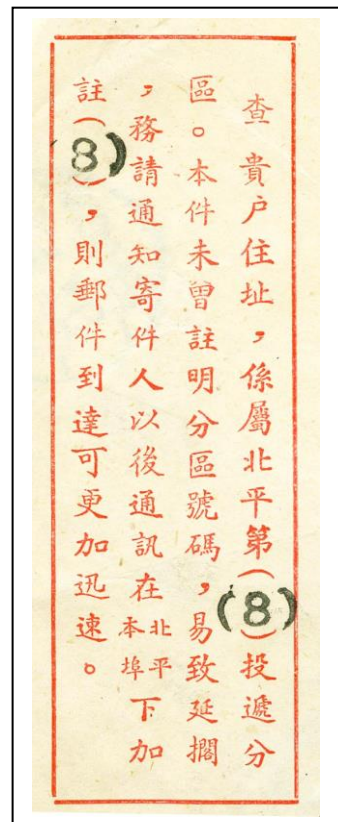 查 貴户住址，係屬北平第(8)投遞分
區。本件未曾註明分區號碼，易致延擱
，務請通知寄件人以後通訊在北平本埠下加
註(8)，則郵件到達可更加迅速。